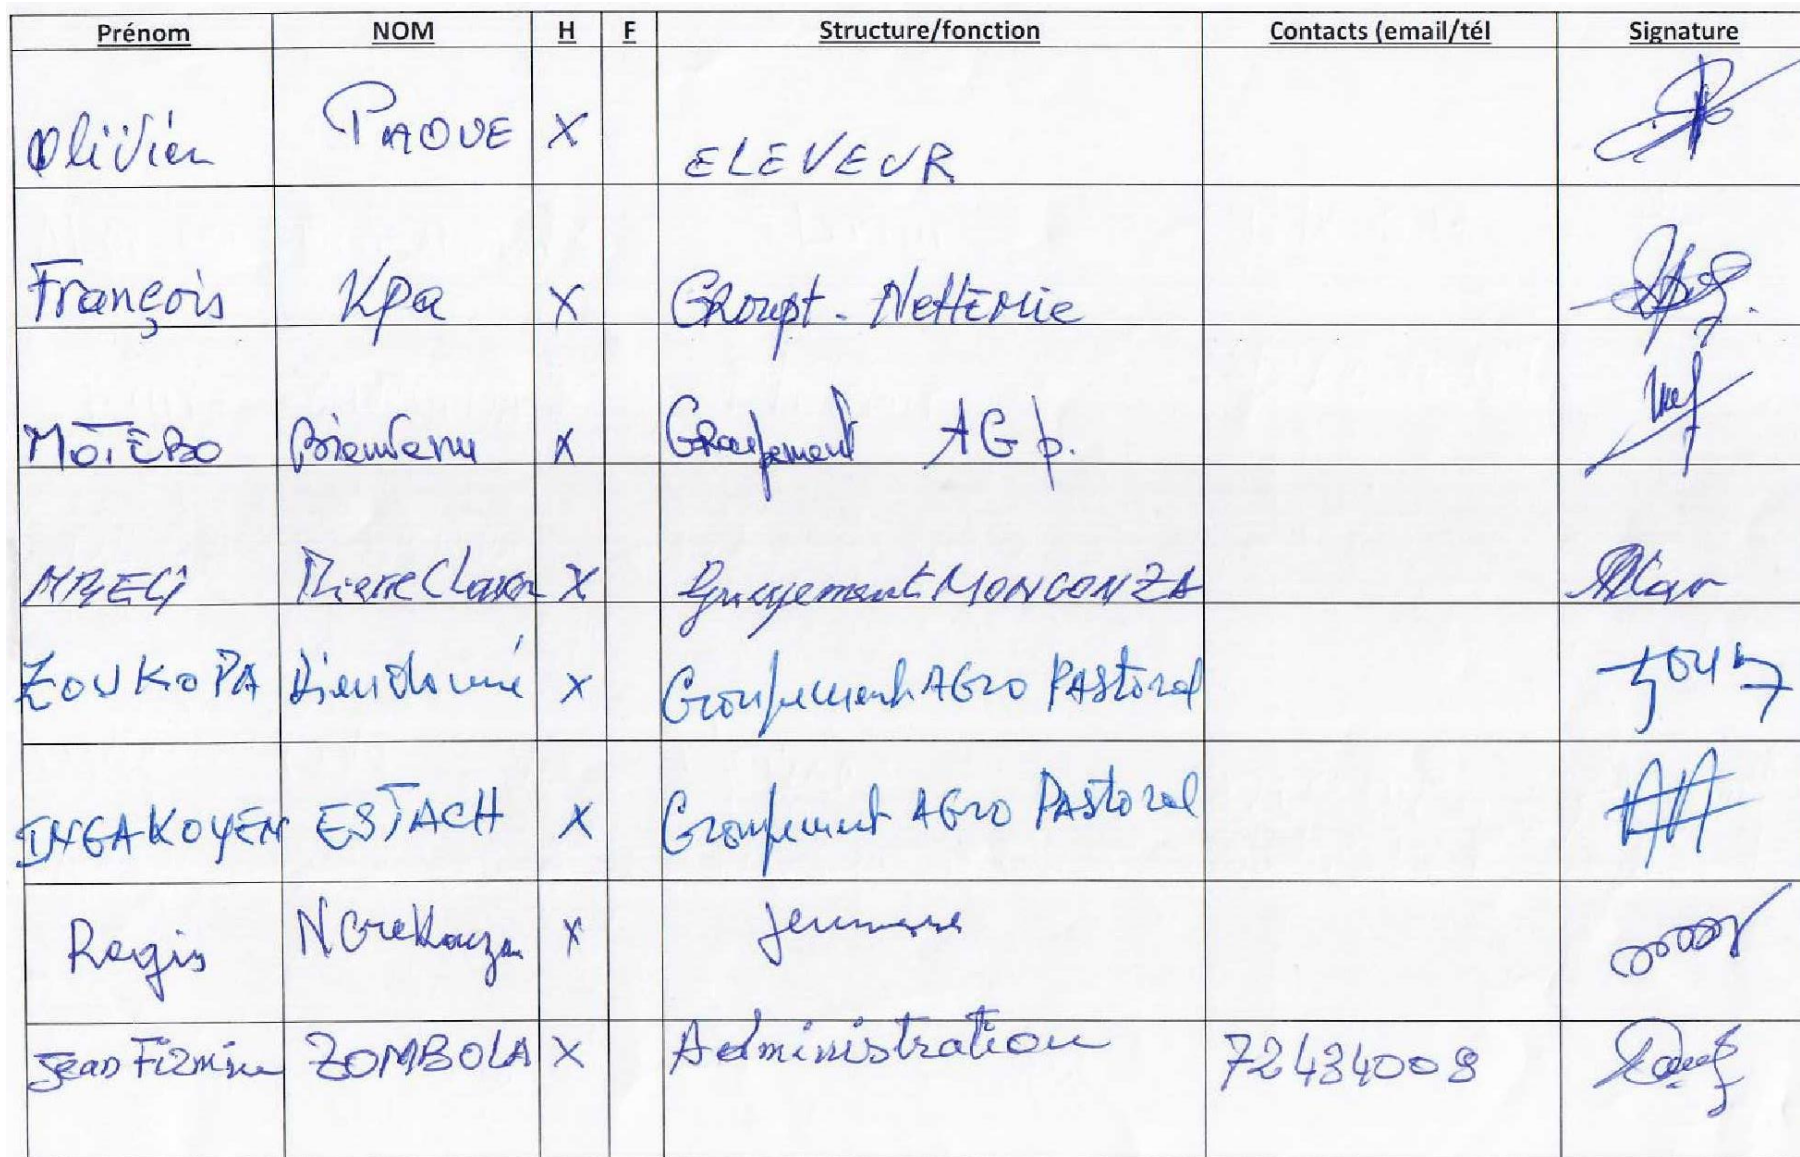 Prénom NOM H F Structure/fonction Contacts (email/tél Signature
Olivier PAOUE X ELEVEUR
François Kpa X GRoupt - NeHEMie
MOTEBO Bienvenu X GRoupement AG p.
Pierre Claver X Groupement MONGONZA
ZOUKOPA Dieudonné X Groupement AGro PAStoral
INGAKOYEN ESTACH X Groupement AGro PAStoral
Regis X Jeunesse
Jean Firmin ZOMBOLA X Administration 72434008